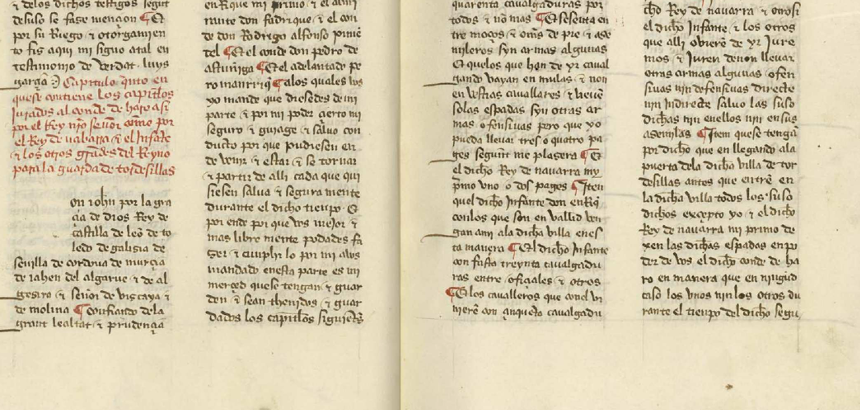 & delos dichos testigos segunt
desuso se faze mençion ¶ &
por su Ruego & otorgamien
to fis aqui mi signo atal en
testimonio de verdat . luys
garçia :) Capitulo en
quese contiene los capitłos
Jurados al conde de haro asi
por el Rey nr̃o señor como por
el Rey de nabarra & el Infãte
& los otros grãdes del Reyno
para la guarda de tordesillas
on iohn por la gra
çia de dios Rey de
castilla de leõ de to
ledo de galisia de
seuilla de cordoua de murçia
de iahen del algarue & de al
gesira & señor de viscaya &
de molina ¶ confiando dela
grant lealtat & prudençia
enRique mi primo & el almi
rante don fadrique & el con
de don Rodrigo alfonso pimẽ
tel ¶ & el conde don pedro de
astuñiga ¶ & el adelantado pe
ro manriq̃ ¶ alos quales los
yo mande que diesedes de mi
parte & por mi poder çierto mi
seguro & guiage & saluo con
ducto por que pudiesen en
de venir & estar & se tornar
& partir de alli cada que qui
siesen salua & segura mente
durante el dicho tienpo . &
por ende por que vos mejor &
mas libre mente podades fa
ser & cunplir lo por mi a vos
mandado enesta parte es mi
merçed quese tengan & guar
den & sean thenidos & guar
dados los capitłos siguiẽtes
quarenta caualgaduras por
todos & no mas ¶ & sesenta en
tre moços & om̃s de pie & ase
mileros syn armas algunas
& los que han de yr caual
gando vayan en mulas & non
en bestias cauallares & lieuẽ
solas espadas syn otras ar
mas ofensiuas pero que yo
pueda lleuar tres o quatro pa
ges segunt me plasera ¶ &
el dicho Rey de nauarra my
pr̃mo vno o dos pages ¶ Iten
quel dicho Infante don enRiq̃
conlos que son en vallid ven
gan a my ala dicha villa enes
ta manera ¶ El dicho Infante
con fasta treynta caualgadu
ras entre ofiçiales & otros
¶ & los caualleros que conel vi
nierẽ con çinquẽta caualgadu
cho Rey de nauarra & otrosi
el dicho Infante & los otros
que alli obierẽ de yr Jure
mos & Juren de non lleuar
otras armas algunas ofen
siuas nin defensiuas directe
nin indirecte saluo las suso
dichas nin enellos nin en sus
asemilas ¶ Item quese tenga
por dicho que en llegando ala
puerta dela dicha villa de tor
desillas antes que entrẽ en
la dicha villa todos los suso
dichos exçepto yo & el dicho
Rey de nauarra mi primo de
xen las dichas espadas en po
der de vos el dicho conde de ha
ro en manera que en ningũd
caso los vnos nin los otros du
rante el tienpo del dicho segu